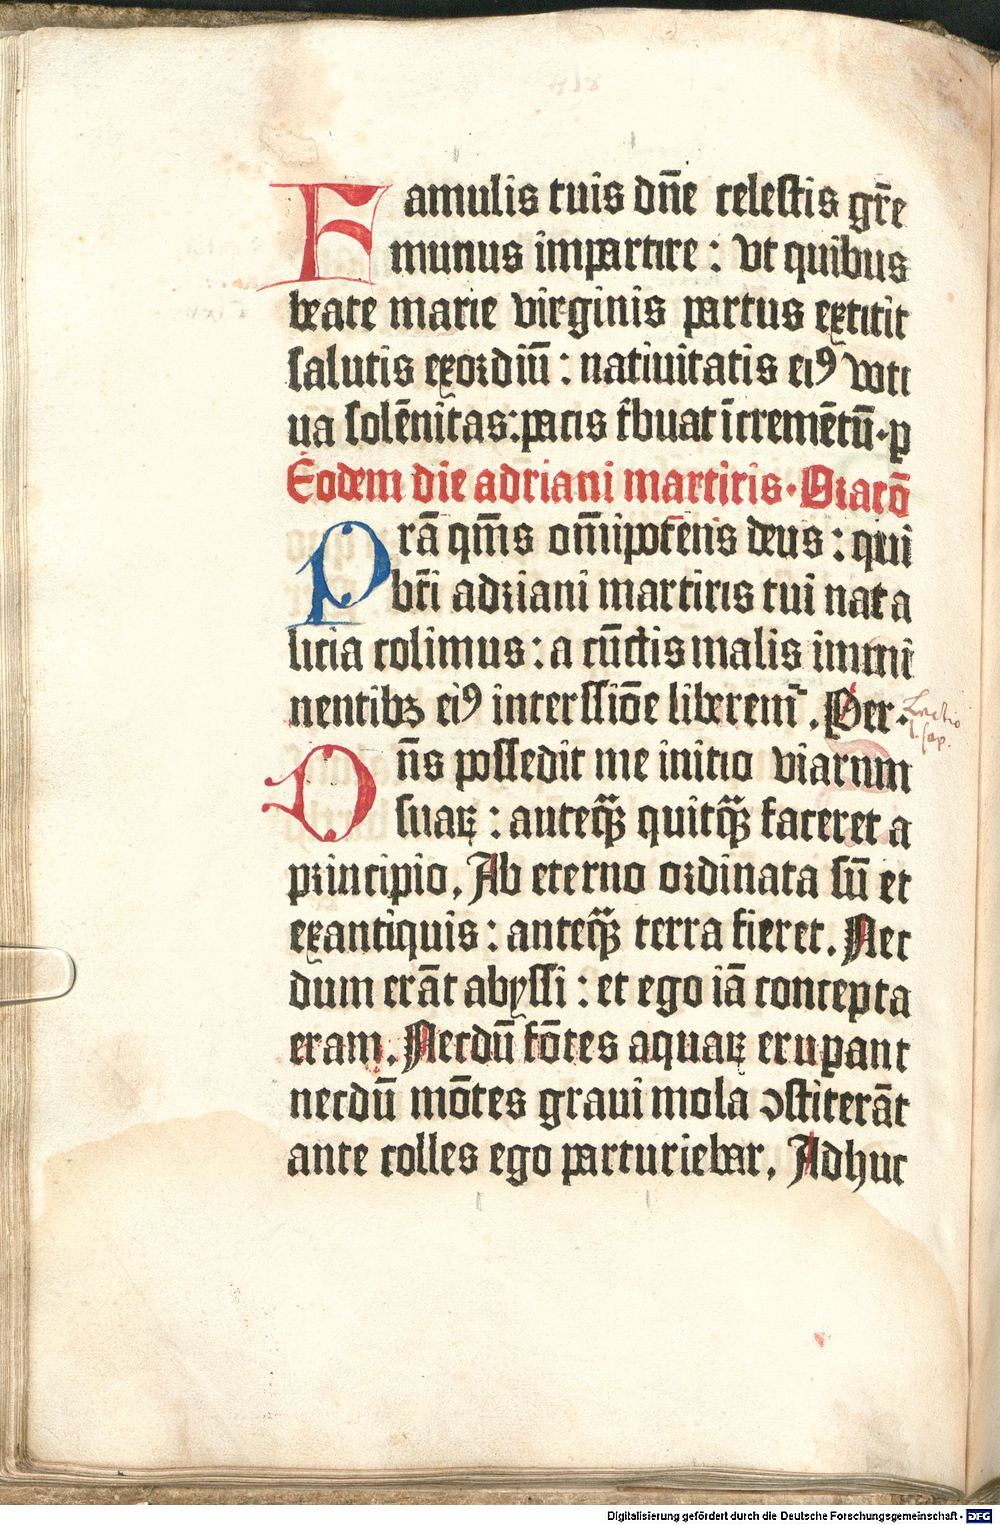 Famulis tuis dn̄e celestis gr̄e
munus impartire : vt quibus
beate marie virginis partus extitit
salutis exordiū : natiuitatis eiꝰ voti
ua solēnitas : pacis t̄buat īcremētū · p
Eodem die adriani martiris · Oracō
Prā qm̄s om̄ipotens deus : qui
bt̄i adriani martiris tui nata
licia colimus : a cūctis malis immi
nentibꝫ eiꝰ intercessiōe liberem̄ . Per ·
Lectio
l. sap.
Dn̄s possedit me initio viarum
suaꝝ : anteqꝫ̄ quitqꝫ̄ faceret a
principio . Ab eterno ordinata sū et
exantiquis : anteqꝫ̄ terra fieret . Nec
dum erāt abyssi : et ego iā concepta
eram . Necdū fōtes aquaꝝ erupant
necdū mōtes graui mola ↄstiterāt
ante colles ego parturiebar . Adhuc
Digitalisierung gefördert durch die Deutsche Forschungsgemeinschaft - DFG